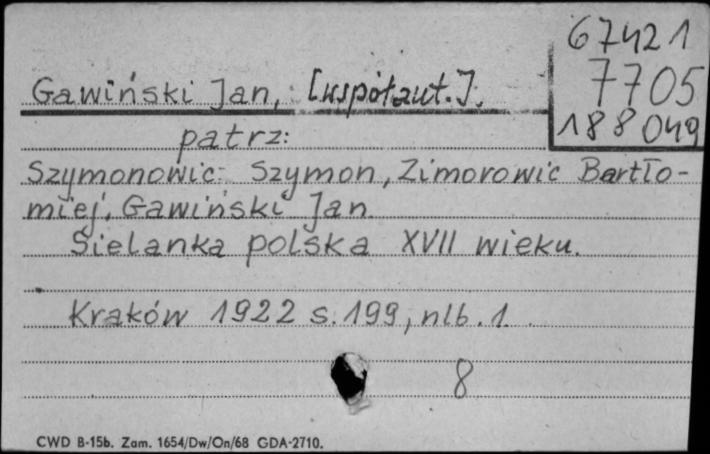 67421
7705
188049
Gawiński Jan, [współaut.].
patrz:
Szymonowic Szymon, Zimorowic Bartło-
miej, Gawiński Jan.
Sielanka polska XVII wieku.
Kraków 1922 s. 199, nlb. 1.
8
CWD B-15b. Zam. 1654/Dw/On/68 GDA-2710.